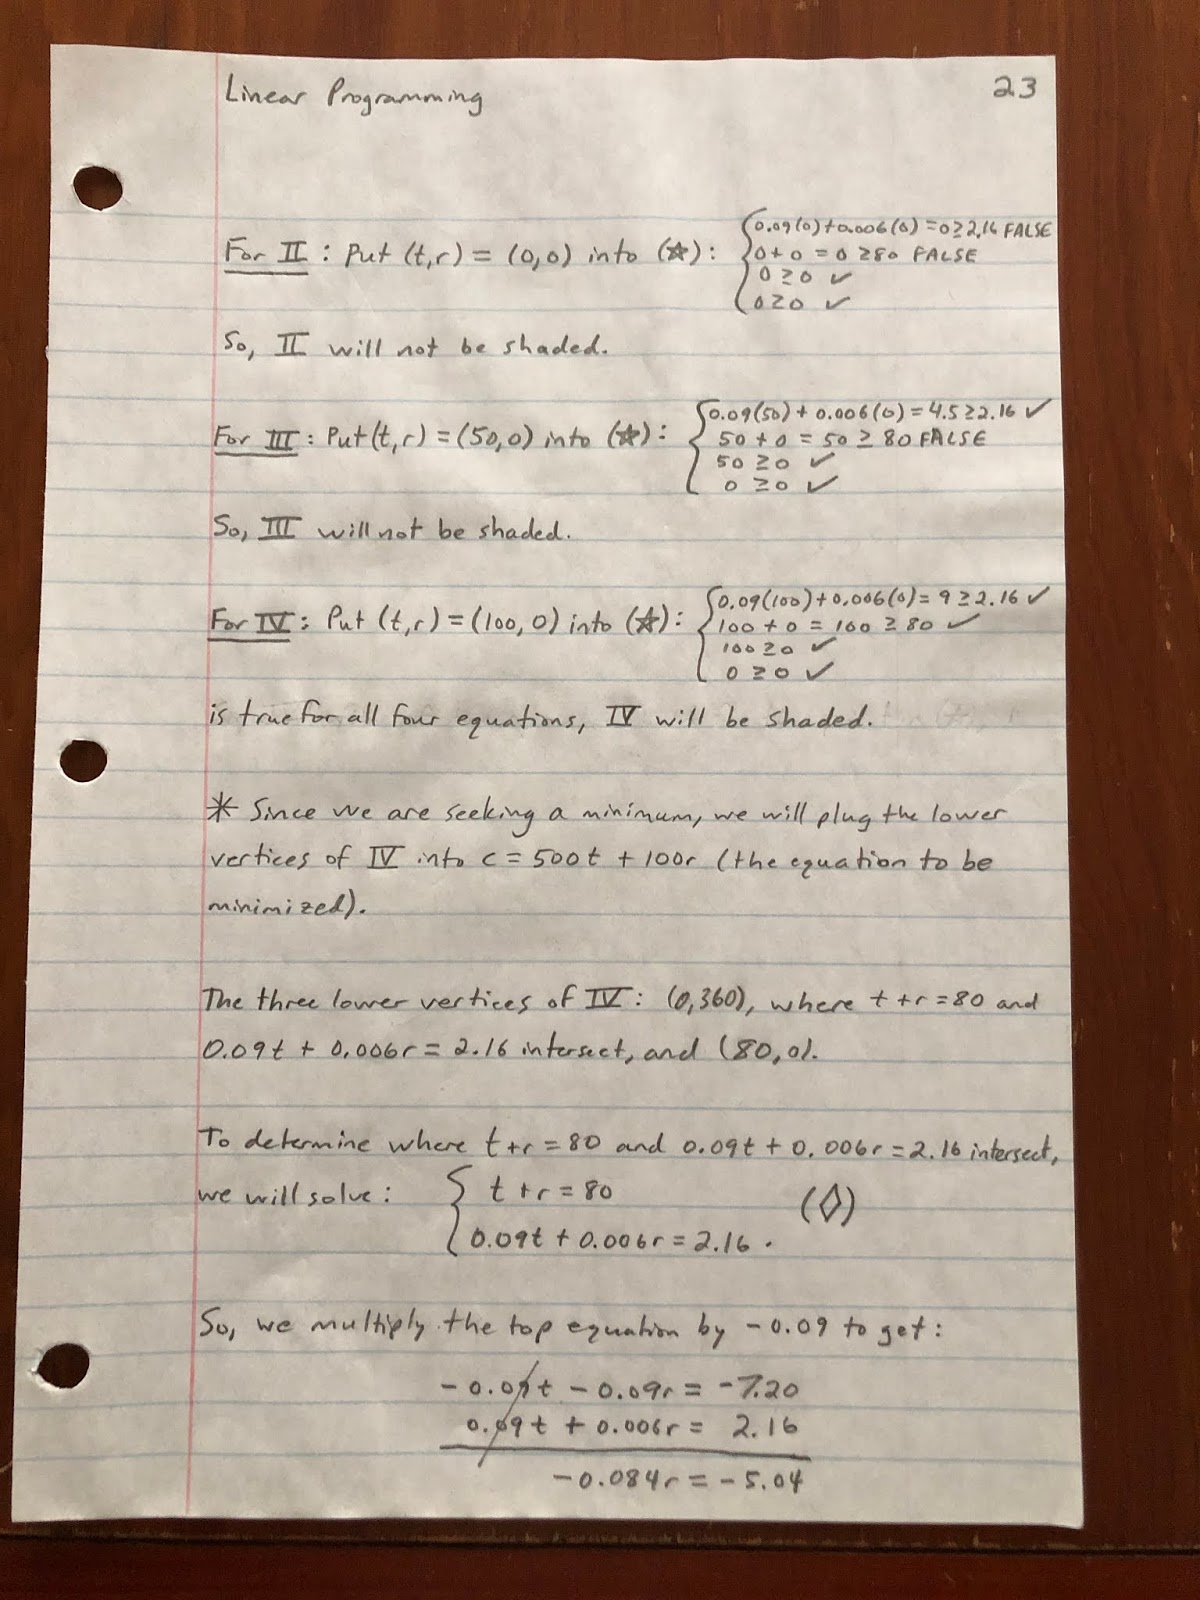 Linear Programming 23
For II : Put (t,r) = (0,0) into (☆): { 0.09(0)+0.006(0) = 0 ≥ 2.16 FALSE
0 + 0 = 0 ≥ 80 FALSE
0 ≥ 0 ✓
0 ≥ 0 ✓
So, II will not be shaded.
For III : Put (t,r) = (50,0) into (☆): { 0.09(50) + 0.006(0) = 4.5 ≥ 2.16 ✓
50 + 0 = 50 ≥ 80 FALSE
50 ≥ 0 ✓
0 ≥ 0 ✓
So, III will not be shaded.
For IV : Put (t,r) = (100,0) into (☆): { 0.09(100)+0.006(0) = 9 ≥ 2.16 ✓
100 + 0 = 100 ≥ 80 ✓
100 ≥ 0 ✓
0 ≥ 0 ✓
is true for all four equations, IV will be shaded.
* Since we are seeking a minimum, we will plug the lower
vertices of IV into c = 500t + 100r (the equation to be
minimized).
The three lower vertices of IV : (0,360), where t + r = 80 and
0.09t + 0.006r = 2.16 intersect, and (80,0).
To determine where t+r = 80 and 0.09t + 0.006r = 2.16 intersect,
we will solve : { t + r = 80 (◊)
0.09t + 0.006r = 2.16 .
So, we multiply the top equation by -0.09 to get :
-0.09t - 0.09r = -7.20
0.09t + 0.006r = 2.16
-0.084r = -5.04